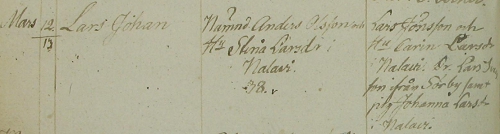 Mars 12 Lars Johan
13
Nämnd. Anders Olsson och
Hu Stina Larsdr i
Nalavi.
38.
Lars Jönsson och
Hu Carin Larsdr
Nalavi. Dr. Lars
ifrån Sörby samt
pig Johanna Larsdr
i Nalavi.